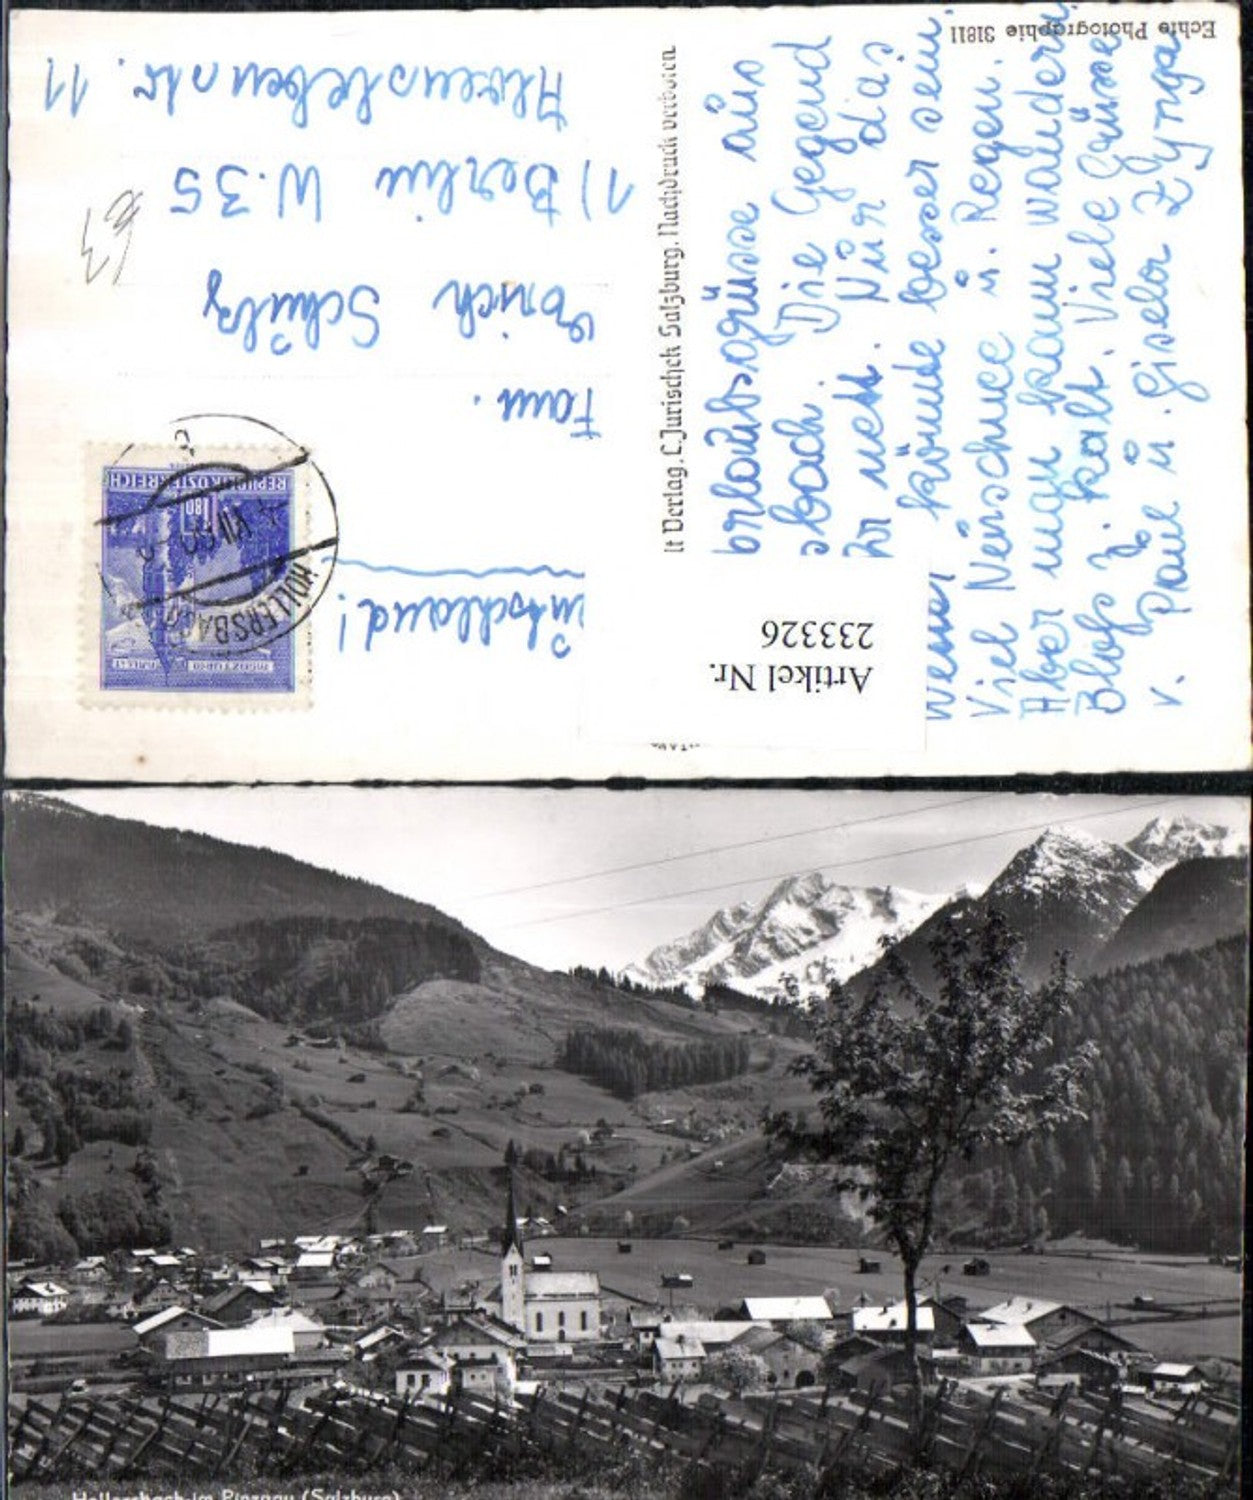 Echte Photographie 31811
lt Verlag, C. Jurischek Salzburg. Nachdruck verboten
Artikel Nr.
233326
REPUBLIK ÖSTERREICH
1.80
HOLLERSBACH
Fam.
Erich Schulz
1) Berlin W. 35
Alvenslebenstr. 11
utschland!
urlaubsgrüsse aus
sbach. Die Gegend
nett. Nur das
könnte besser sein
Viel Neuschnee u. Regen.
Aber man kann wandern.
Bloß z. kalt. Viele Grüsse
v. Paul u. Gisela
Hollersbach im Pinzgau (Salzburg)